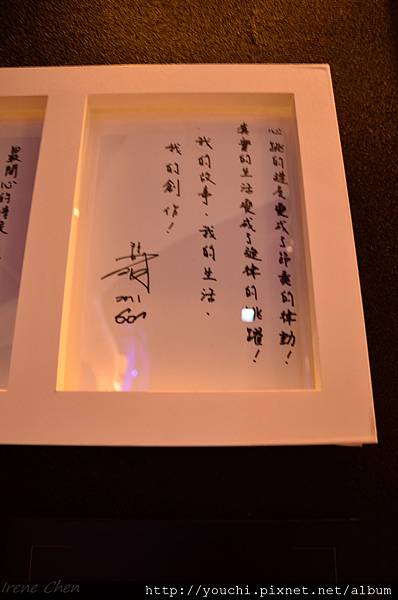 心跳的速度變成了節奏的体動！
真實的生活變成了旋体的跳躍！
我的故事、我的生活、
我的創作！
最開心的
Irene Chen
http://youchi.pixnet.net/album